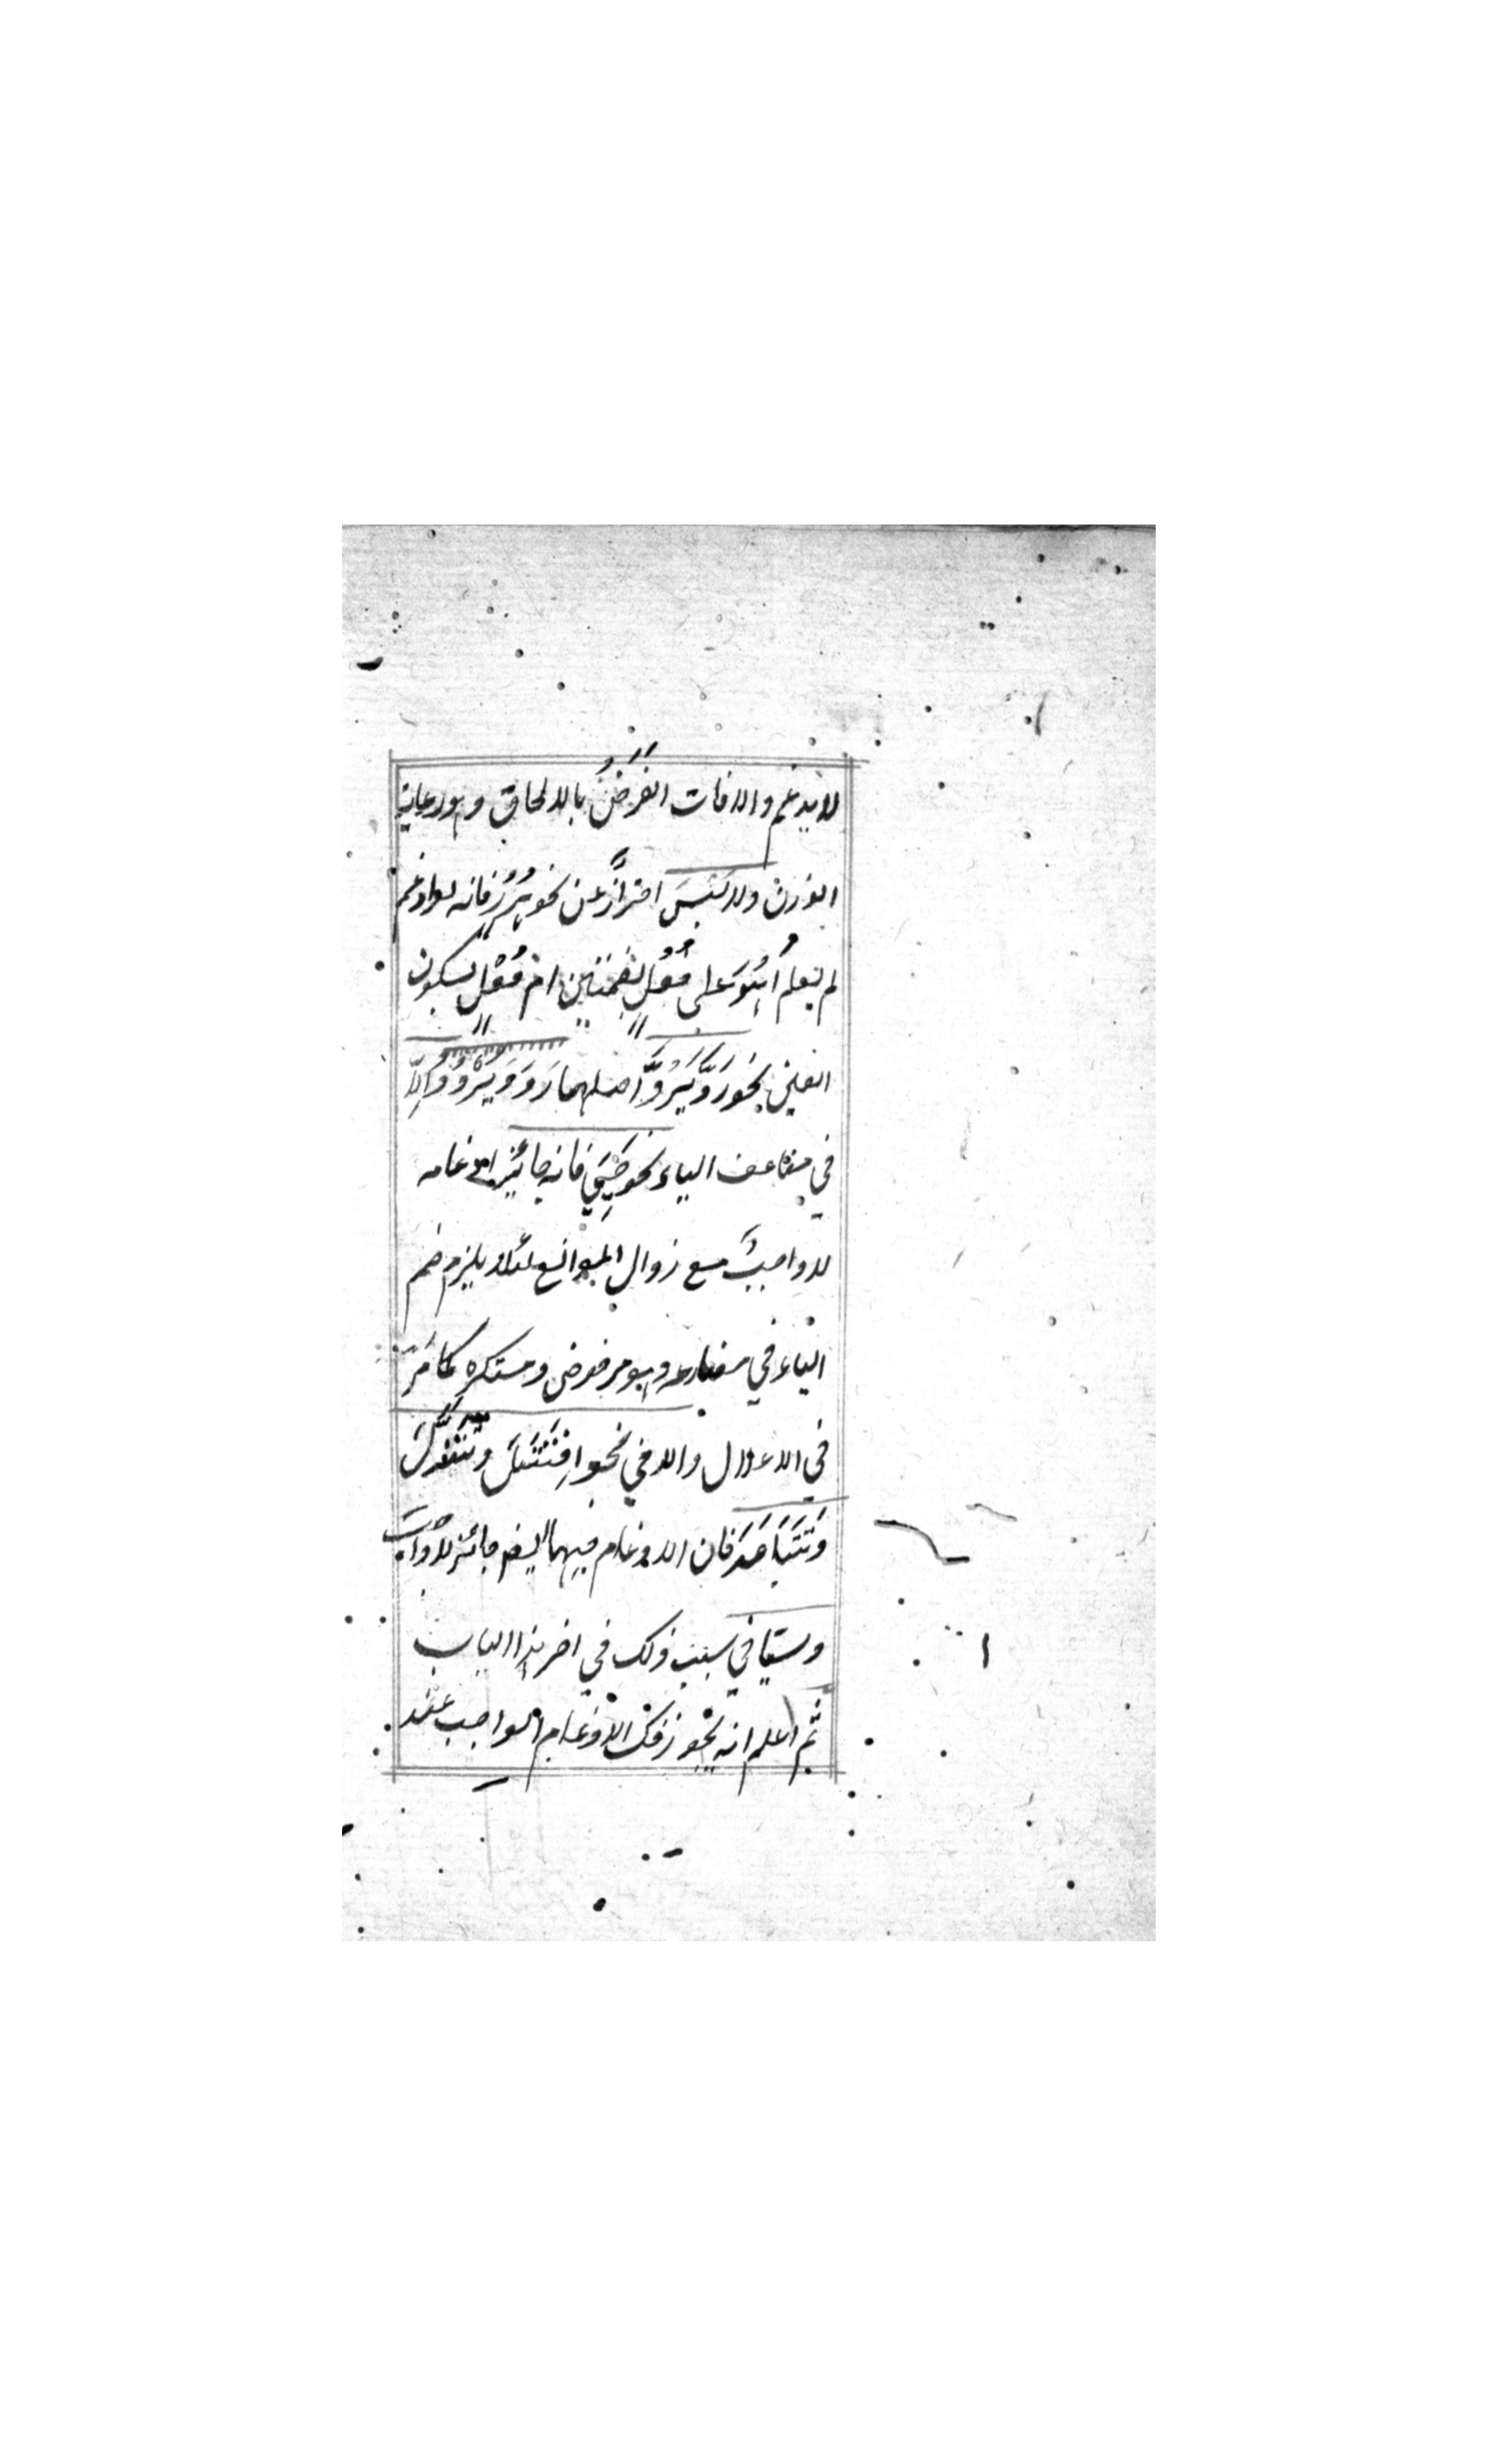 لا يدغم والا فات الغَرَضُ بالالحاق وهو رعاية
الوزن ولا لَبْسَ احترازٌ عن نحو سُرُرٍ فانه لو ادغم
لم يعلم أهُوَ على فُعُلٍ بضمتين ام فُعْلٍ بسكون
العين نحو رَدَّ يَرُدُّ اصلهما رَدَدَ وَيَرْدُدُ وَالّا
في مضاعف الياء نحو حَيِيَ فانه جائزٌ ادغامه
لا واجبٌ مع زوال الموانع لئلا يلزم ضم
الياء في مضارعه وهو مرفوض ومستكره كما مَرَّ
في الاعلال والا في نحو اِقْتَتَلَ وتَتَنَزَّلُ
وَتَتَبَاعَدُ فان الادغام فيهما ايضا جائز لا واجب
وستعرف سبب ذلك في اخر هذا الباب
ثم اعلم انه يجوز فك الادغام الواجب عند